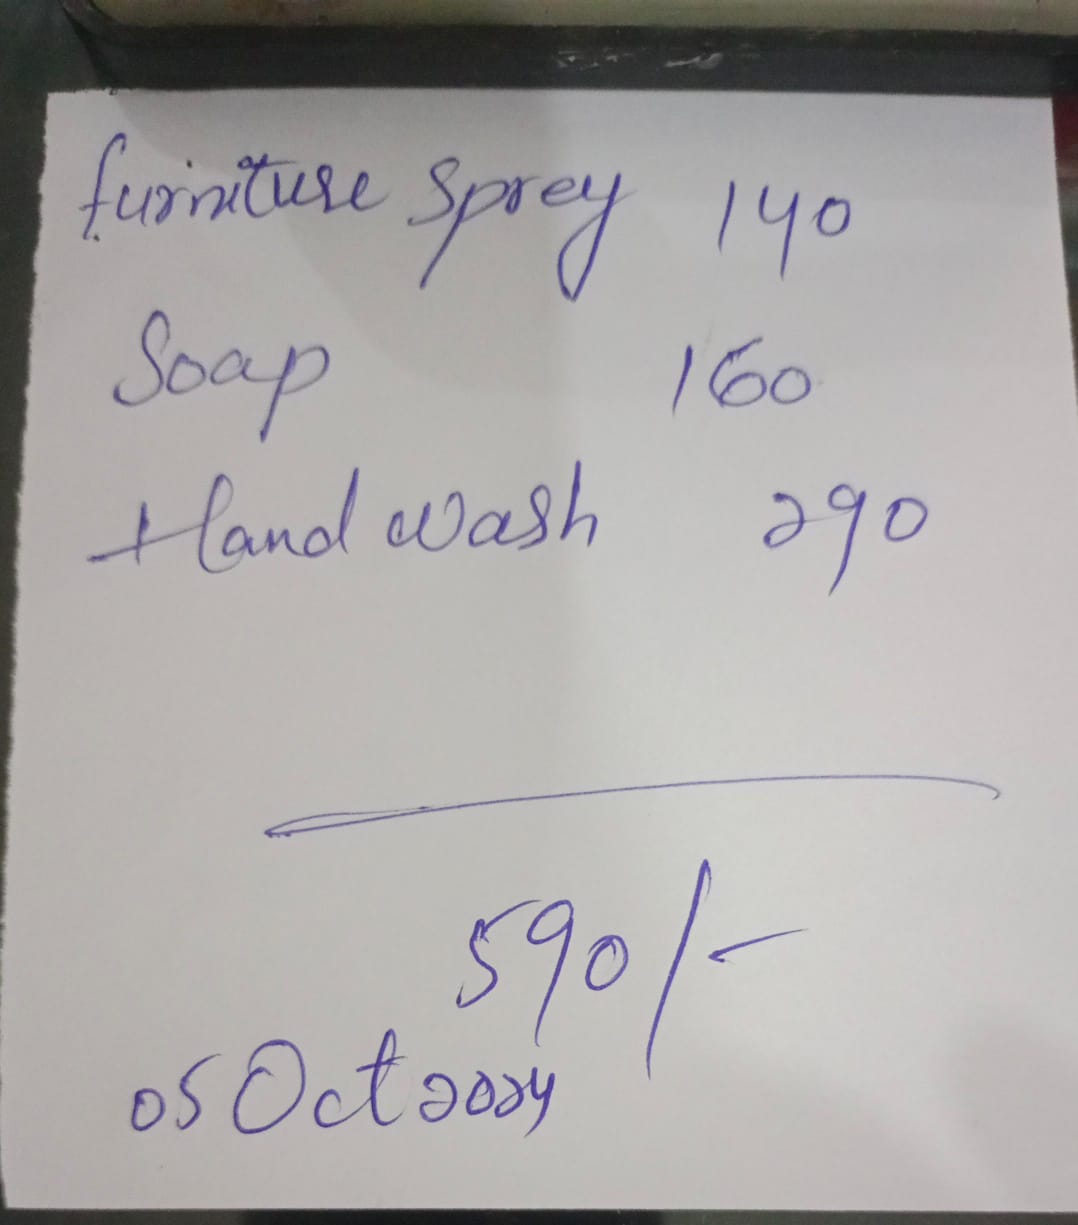 furniture Sprey 140
Soap 160
Hand wash 290
590/-
05 Oct 2024